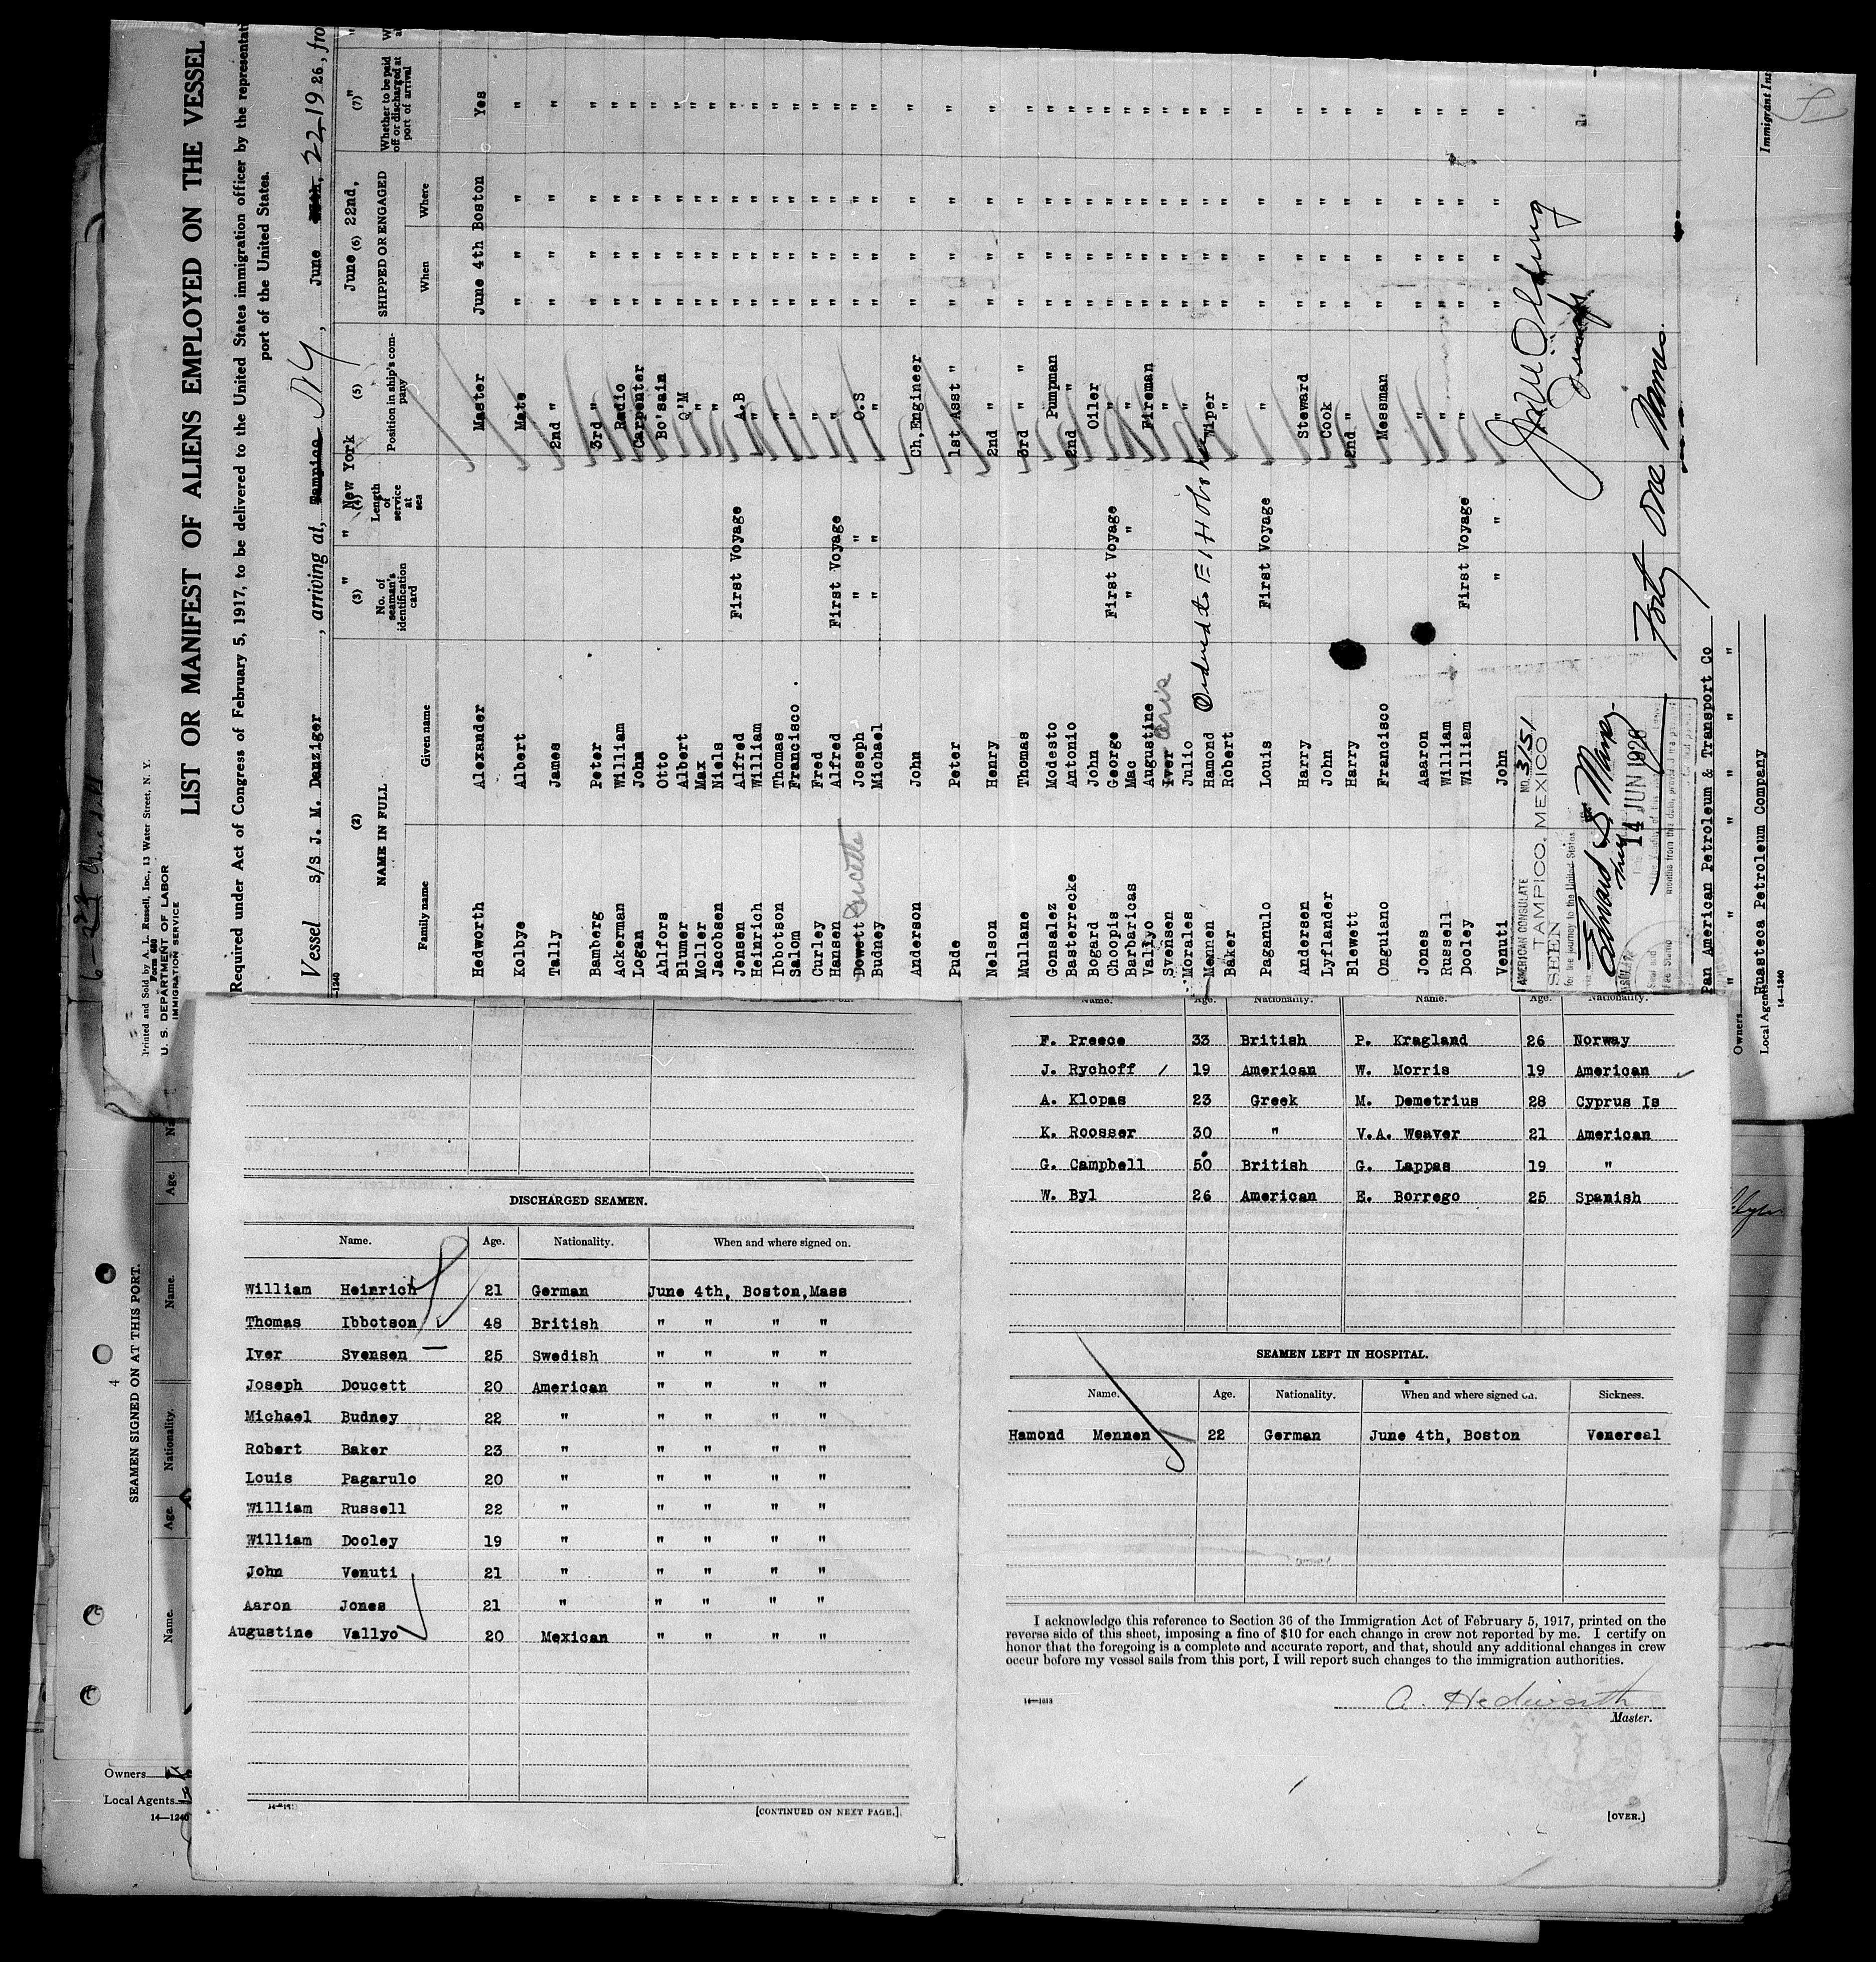 Printed and Sold by A. L. Russell, Inc., 13 Water Street, N. Y.
Form 680
U. S. DEPARTMENT OF LABOR
IMMIGRATION SERVICE
LIST OR MANIFEST OF ALIENS EMPLOYED ON THE VESSEL
Required under Act of Congress of February 5, 1917, to be delivered to the United States immigration officer by the representat
port of the United States.
Vessel S/S J. M. Danziger, arriving at, Tampico NY, June 22, 1926, fro
" " New York June 22nd, "
(2) (3) (4) (5) (6) (7)
NAME IN FULL
Family name Given name
No. of seaman's identification card
Length of service at sea
Position in ship's company
SHIPPED OR ENGAGED
When Where
Whether to be paid off or discharged at port of arrival
Hedworth Alexander Master June 4th Boston Yes
Kolbye Albert Mate " " " "
Tally James 2nd " " " " "
Bamberg Peter 3rd " " " " "
Ackerman William Radio " " " "
Logan John Carpenter " " " "
Ahlfors Otto Bo'sain " " " "
Blumer Albert Q'M " " " "
Moller Max " " " " "
Jacobsen Niels " " " " "
Jensen Alfred First Voyage A.B " " " "
Heinrich William " " " " "
Ibbotson Thomas " " " " "
Salom Francisco. " " " " "
Curley Fred " " " " "
Hansen Alfred First Voyage " " " " "
Dowett Doucette Joseph " " O.S " " " "
Budney Michael " " " " " " "
Anderson John Ch,Engineer " " " "
Pude Peter 1st Asst " " " " "
Nelson Henry 2nd " " " " "
Mullane Thomas 3rd " " " " " "
Gonsalez Modesto Pumpman " " " "
Basterrecke Antonio 2nd " " " " "
Bogard John Oiler " " " "
Choopis George First Voyage " " " " "
Barbaricas Mac " " " " " " "
Vallyo Augustine Fireman " " " "
Svensen Iver " " " " "
Morales Julio " " " " "
Mennen Hamond Ordered to E I Hosp Wiper " " " "
Baker Robert " " " " "
Paganulo Louis First Voyage " " " " "
Andersen Harry Steward " " " "
Lyflander John Cook " " " "
Blewett Harry 2nd " " " " "
Onguiano Francisco Messman " " " "
Jones Aaaron " " " " "
Russell William " " " " "
Dooley William First Voyage " " " " "
Venuti John " " " " " " "
AMERICAN CONSULATE NO. 3151
TAMPICO, MEXICO
SEEN
for the journey to the United States
14 JUN 1926
Forty one Names.
Owners Pan American Petroleum & Transport Co
" " " " "
Local Agents Huasteca Petroleum Company
14—1240
Immigrant Ins
DISCHARGED SEAMEN.
Name. Age. Nationality. When and where signed on.
William Heinrich 21 German June 4th, Boston,Mass
Thomas Ibbotson 48 British " " " "
Iver Svensen 25 Swedish " " " "
Joseph Doucett 20 American " " " "
Michael Budney 22 " " " " "
Robert Baker 23 " " " " "
Louis Pagarulo 20 " " " " "
William Russell 22 " " " " "
William Dooley 19 " " " " "
John Venuti 21 " " " " "
Aaron Jones 21 " " " " "
Augustine Vallyo 20 Mexican " " " "
[CONTINUED ON NEXT PAGE.]
Name. Age. Nationality. Name. Age. Nationality.
F. Preece 33 British P. Kragland 26 Norway
J. Rychoff 19 American W. Morris 19 American
A. Klopas 23 Greek M. Demetrius 28 Cyprus Is
K. Roosser 30 " V.A. Weaver 21 American
G. Campbell 50 British G. Lappas 19 "
W. Byl 26 American E. Borrego 25 Spanish
SEAMEN LEFT IN HOSPITAL.
Name. Age. Nationality. When and where signed on. Sickness.
Hamond Mennen 22 German June 4th, Boston Venereal
I acknowledge this reference to Section 36 of the Immigration Act of February 5, 1917, printed on the
reverse side of this sheet, imposing a fine of $10 for each change in crew not reported by me. I certify on
honor that the foregoing is a complete and accurate report, and that, should any additional changes in crew
occur before my vessel sails from this port, I will report such changes to the immigration authorities.
A. Hedworth
Master.
[OVER.]
4
SEAMEN SIGNED ON AT THIS PORT.
Name. Age. Nationality. Name. Age. Na
Owners
Local Agents
14—1240